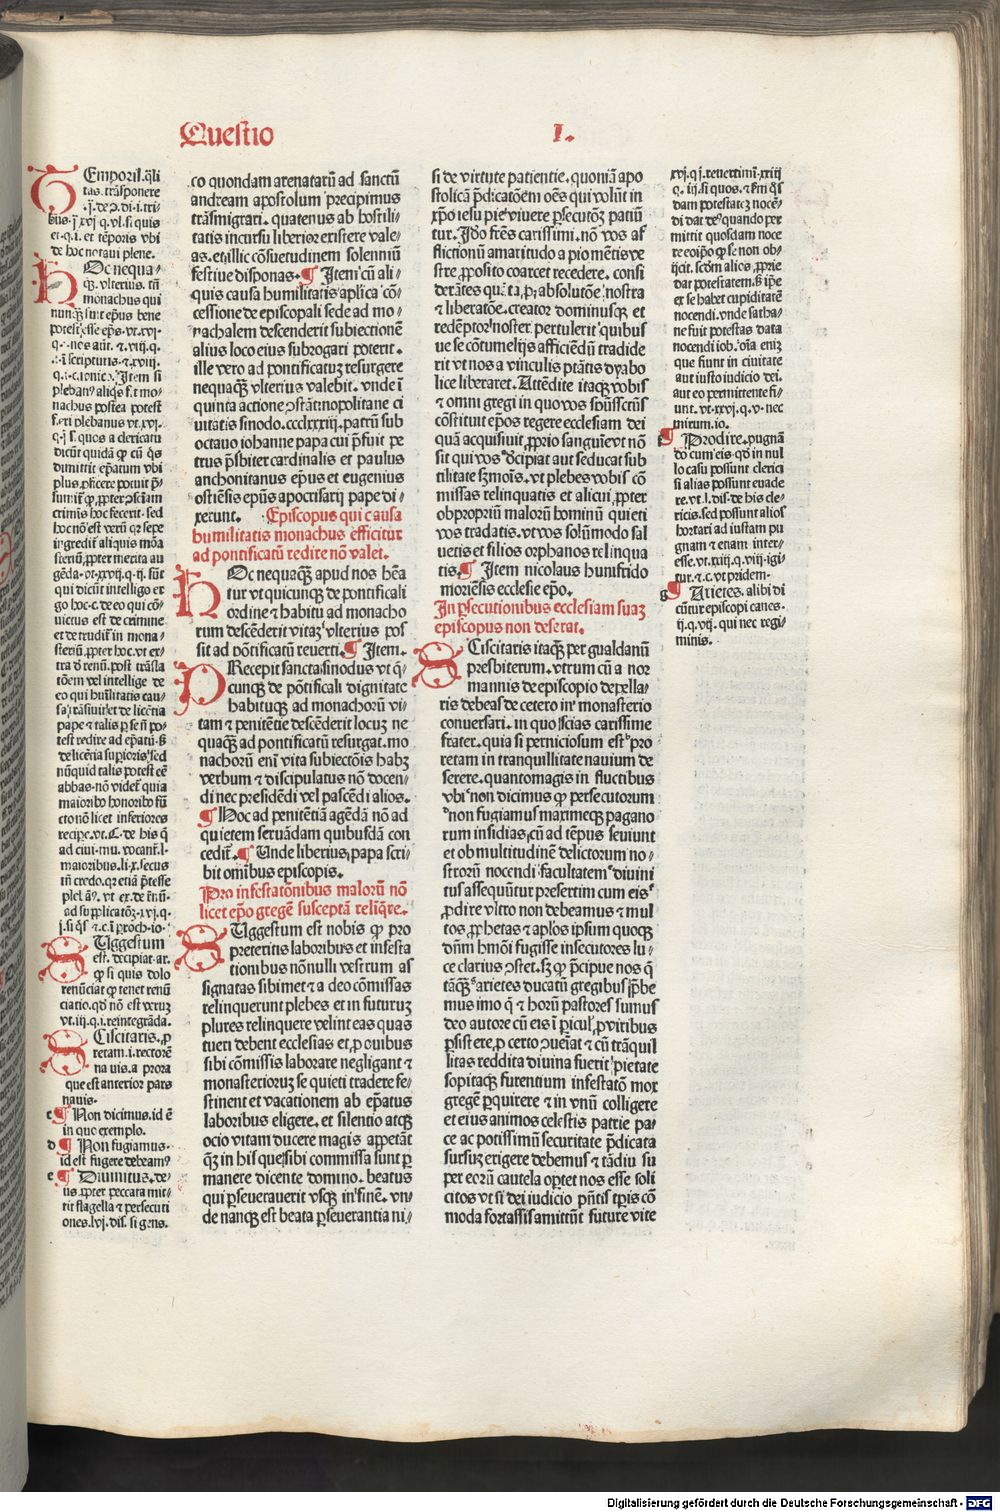 Questio I.
TEmporil. qͥli
tas. trāsponere
kus. ī xvj q. vl. si quis
et. q. i. et tēporis vbi
de hoc notaui plene.
HOc nequa⸗
monachus qui
plebanꝰ aliqͥs f. t mo⸗
nachus postea potest
q̄ i s̄. quos a clericatu
dimittit ep̄atum vbi
crimis hoc fecerit. sed
hoc nō est verū qꝛ sepe
ingredit̄ aliquis mōa
steriū ꝓpter merita au
gēda. vt. xvij. q. ij. sūt
qui dicūt intelligo er
go hoc. c. de eo qui cō⸗
uictus est de crimine
et detrudit̄ in mona⸗
steriū. ꝓpter hoc. vt ex⸗
tra d̄ renū. post trāsla
tōem vel intellige de
eo qui hūilitatis cau⸗
pape ⁊ talis ꝑ se n̄ po⸗
test redire ad ep̄atū. s̄
de licētia supioris. sed
nūquid talis potest eē
abbas. nō videt̄ quia
maioribꝰ honoribꝰ fū
ctonō licet inferiores
recipe. vt. C. de his q̄
ad ciui. mu. vocant̄. l.
maioribus. li. x. secus
tn̄ credo. qꝛ etiā p̄tesse
SUggestum
est. decipiat. ar.
ꝙ si quis dolo
renūciat ꝙ tenet renū
ciatio. qd̄ nō est verum
vt. iij. q. i. reintegrāda.
SCiscitaris. ꝓ
retam. i. rectorē
nauis. a prora
que est anterior pars
nauis.
c ¶ Non dicimus. id ē
in quo exemplo.
d ¶ Non fugiamus.
id est fugere debeamꝰ
e ¶ Diuinitus. de⸗
us. ꝓpter peccata mit⸗
tit flagella ⁊ persecuti
ones. lvj. dis. si gens.
co quondam arenatarū ad sanctū
andream apostolum precipimus
trāsmigrari. quatenus ab hostili⸗
tatis incursu liberior existere vale⸗
as. et illic cōsuetudinem solenniū
festiue disponas. ¶ Item cū ali⸗
quis causa humilitatis aplica cō⸗
cessione de episcopali sede ad mo⸗
nachalem descenderit subiectionē
alius loco eius subrogari poterit.
ille vero ad pontificatū resurgere
nequaqͣ vlterius valebit. vnde ī
quinta actione ꝯstātinopolitane ci
uitatis sinodo. ccclxxxiij. patrū sub
octauo iohanne papa cui p̄fuit pe
trus p̄sbiter cardinalis et paulus
anchonitanus ep̄us et eugenius
ostiēsis ep̄us apocrisarij pape di⸗
xerunt. Episcopus qui causa
humilitatis monachus efficitur
ad pontificatū redire nō valet.
HOc nequaqͣ apud nos hēa
tur vt quicunqꝫ de pontificali
ordine ⁊ habitu ad monacho
rum descēderit vitaꝫ vlterius pos
sit ad pōtificatū reuerti. ¶ Item.
PRecepit sancta sinodus vt q̄⸗
cunqꝫ de pōtificali dignitate
habituqꝫ ad monachorū vi⸗
tam ⁊ penitētie descēderit locuꝫ ne
quaqͣ ad pontificatū resurgat. mo
nachorū em̄ vita subiectōis habꝫ
verbum ⁊ discipulatus nō docen⸗
di nec presidēdi vel pascēdi alios.
¶ Hoc ad penitētiā agēdā nō ad
quietem seruādam quibusdā con
cedit̄. ¶ Unde liberius papa scri⸗
bit omībus episcopis.
Pro infestatōnibus malorū nō
licet ep̄o gregē susceptā relīqͣre.
SUggestum est nobis ꝙ pro
preteritis laboribus et infesta
tionibus nōnulli vestrum as
signatas sibimet ⁊ a deo cōmissas
relinquerunt plebes et in futuruꝫ
plures relinquere velint eas quas
tueri debent ecclesias et ꝓ ouibus
sibi cōmissis laborare negligant ⁊
monasterioruꝫ se quieti tradere fe⸗
stinent et vacationem ab ep̄atus
laboribus eligere. et silentio atqꝫ
ocio vitam ducere magis appetāt
qͣꝫ in his que sibi commissa sunt ꝑ
manere dicente domino. beatus
qui ꝑseuerauerit vsqꝫ in finē. vn⸗
de nanqꝫ est beata ꝑseuerantia ni⸗
si de virtute patientie. quoniā apo
stolicā p̄dicatōem oēs qui volūt in
xp̄o iesu pie viuere ꝑsecutōꝫ patiū
tur. Idꝰo fr̄es carissimi. nō vos af
flictionū amaritudo a pio mētis ve
stre ꝓposito coarcet recedere. consi
derātes quāta ꝓ absolutōe nostra
⁊ liberatōe. creator dominusqꝫ et
redēptor noster pertulerit quibus
ue se cōtumelijs afficiēdū tradide
rit vt nos a vinculis ptātis dyabo
lice liberaret. Attēdite itaqꝫ vobis
⁊ omni gregi in quo vos sp̄ūssctūs
cōstituit ep̄os regere ecclesiam dei
quā acquisiuit ꝓprio sanguine vt nō
sit qui vos decipiat aut seducat sub
tilitate sermōis. vt plebes vobis cō
missas relinquatis et alicui ꝓpter
obprop̄riū malorū hominū quieti
vos tradatis. vt vos solūmodo sal
uetis et filios orphanos relinqua
tis. ¶ Item nicolaus hunifrido
moriēsis ecclesie ep̄o.
In ꝑsecutionibus ecclesiam suaꝫ
episcopus non deserat.
SCiscitaris itaqꝫ per gualdanū
presbiterum. vtrum cū a nor
mannis de episcopio depella⸗
ris debeas de cetero in monasterio
conuersari. in quo scias carissime
frater. quia si perniciosum est pro
retam in tranquillitate nauium de
serere. quantomagis in fluctibus
vbi non dicimus ꝙ persecutorum
non fugiamus maximeqꝫ pagano
rum insidias. cū ad tēpus seuiunt
et ob multitudinē delictorum no⸗
strorū nocendi facultatem diuini
tus assequūtur presertim cum eis
ꝓdire vltro non debeamus ⁊ mul
tos ꝓphetas ⁊ aplos ipsum quoqꝫ
dn̄m hm̄oi fugisse insecutores lu⸗
ce clarius ꝯstet. sꝫ ꝙ p̄cipue nos q̄
tāqͣꝫ arietes ducatū gregibus p̄be
mus imo q̄ ⁊ horū pastores sumus
deo autore cū eis ī pericul̓ ꝓ viribus
ꝑsistere. ꝓ certo ꝯuēiat ⁊ cū trāquil
litas reddita diuina fuerit pietate
sopitaqꝫ furentium infestatōe mox
gregē ꝑquirere ⁊ in vnū colligere
et eius animos celestis patrie pa⸗
ce ac potissimū securitate p̄dicata
sursuꝫ erigere debemus ⁊ tādiu su
per eorū cautela oꝑtet nos esse soli
citos vt si dei iudicio p̄ntis tꝑis cō
moda fortassis amittūt future vite
xvj. q. j. reuertimi. xxiij
q. iij. si quos. ⁊ em̄ q̄s
dam potestateꝫ nocē⸗
di dat deꝰ quando per
mittit quosdam noce
re eo ip̄o ꝙ se non ob⸗
ijcit. scd̓m alios ꝓprie
dat potestatem. s̄ ip̄e
ex se habet cupiditatē
nocendi. vnde satha⸗
ne fuit potestas data
nocendi iob. oīa eniꝫ
que fiunt in ciuitate
aut iusto iudicio dei.
aut eo permittente fi⸗
unt. vt. xxvj. q. v. nec
mirum. io.
¶ Prodire. pugnā
do cum eis. qd̄ in nul
lo casu possunt clerici
si alias possunt euade
re. vt. l. dis. de his cle⸗
ricis. sed possunt alios
hortari ad iustam pu
gnam ⁊ etiam inter⸗
esse. vt. xxiij. q. viij. igi⸗
tur. ⁊. c. vt pridem.
g ¶ Arietes. alibi di
cūtur episcopi canes.
ij. q. vij. qui nec regi⸗
minis.
Digitalisierung gefördert durch die Deutsche Forschungsgemeinschaft - DFG